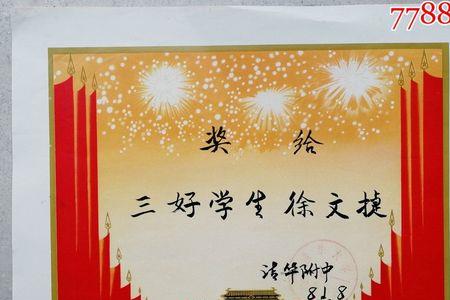 7788
奖给
三好学生徐文捷
清华附中